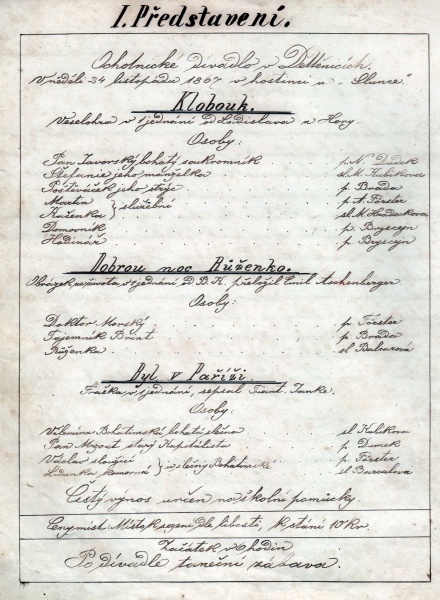 I. Představení.
Ochotnické divadlo v Dětěnicích.
V neděli 24 listopadu 1867 v hostinci u „Slunce"
Klobouk.
Veselohra v 1 jednání od Ladislava z Hory.
Osoby:
Pan Javorský bohatý soukromník p. N. Dudek
Štefanie jeho manželka sl. M. Kubíkova
Poštiváček jeho strýc p. Brada
Martin p. A. Förster
Kačenka } služební sl. M.
Domovník p.
Hodinář p.
Dobrou noc Růženko.
Obrázek ze života v 1 jednání od B. K. přeložil Emil Aschenberger
Osoby:
Doktor Morský p. Förster
Tajemník Brant p. Brada
Růženka sl.
Byl v Paříži.
Fraška v 1 jednání, sepsal Frant. Janke.
Osoby:
Valentina Bohatinská bohatá slečna sl. Kubíkova
Pan Mazout starý Kapitálista p.
Václav sloužící p. Förster
Lidunka komorná } u slečny Bohatinské sl.
Čistý výnos určen na školní pomůcky.
Ceny míst: Místo k sezení dle libosti, k stání 10 Kr.
Začátek v hodin
Po divadle taneční zábava.